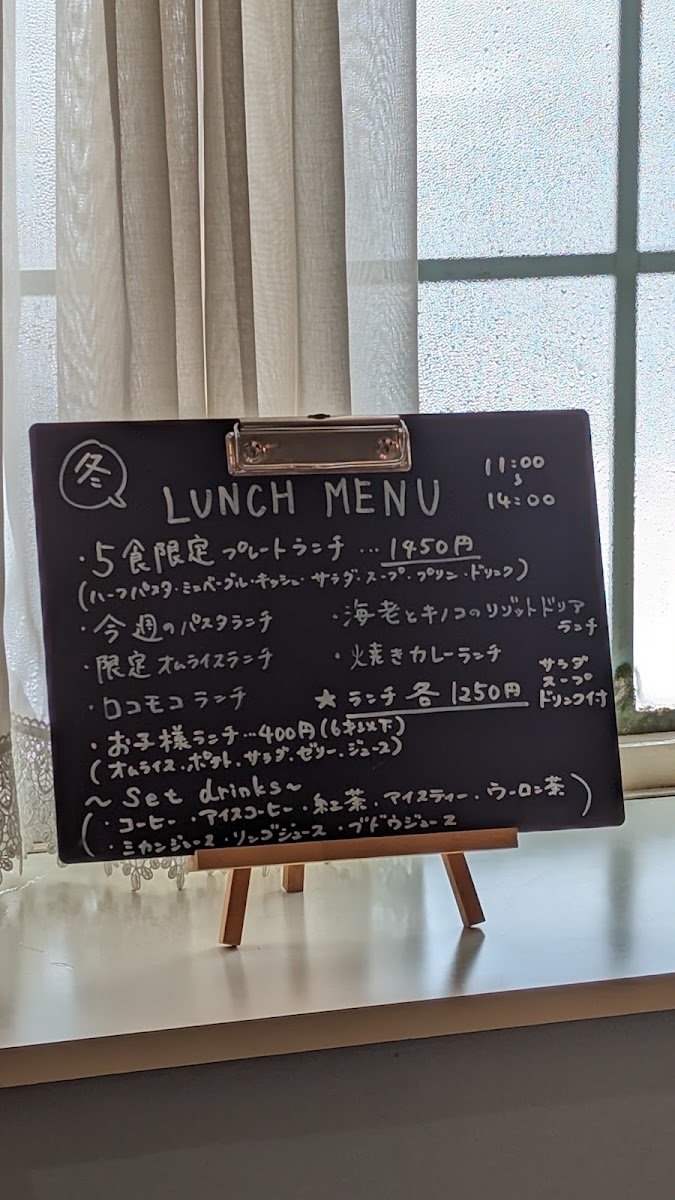 冬
LUNCH MENU
11:00
〜
14:00
・5食限定 プレートランチ …1450円
(ハーフパスタ・ミニベーグル・キッシュ・サラダ・スープ・プリン・ドリンク)
・今週のパスタランチ
・海老とキノコのリゾットドリア
ランチ
・限定オムライスランチ
・焼きカレーランチ
・ロコモコランチ
★ランチ各1250円
サラダ
スープ
ドリンク付
・お子様ランチ…400円(6才以下)
(オムライス・ポテト・サラダ・ゼリー・ジュース)
～Set drinks～
(・コーヒー・アイスコーヒー・紅茶・アイスティー・ウーロン茶
・ミカンジュース・リンゴジュース・ブドウジュース)